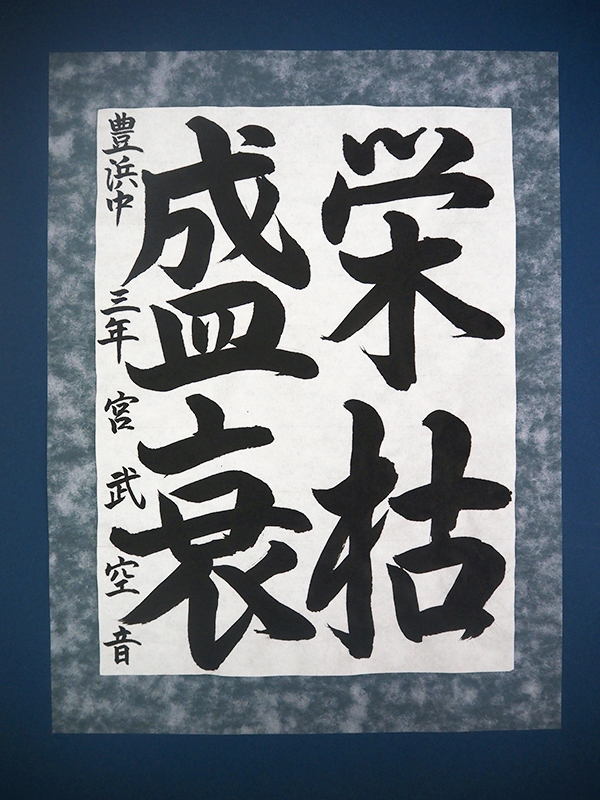 栄枯
盛衰
豊浜中 三年 宮武空音